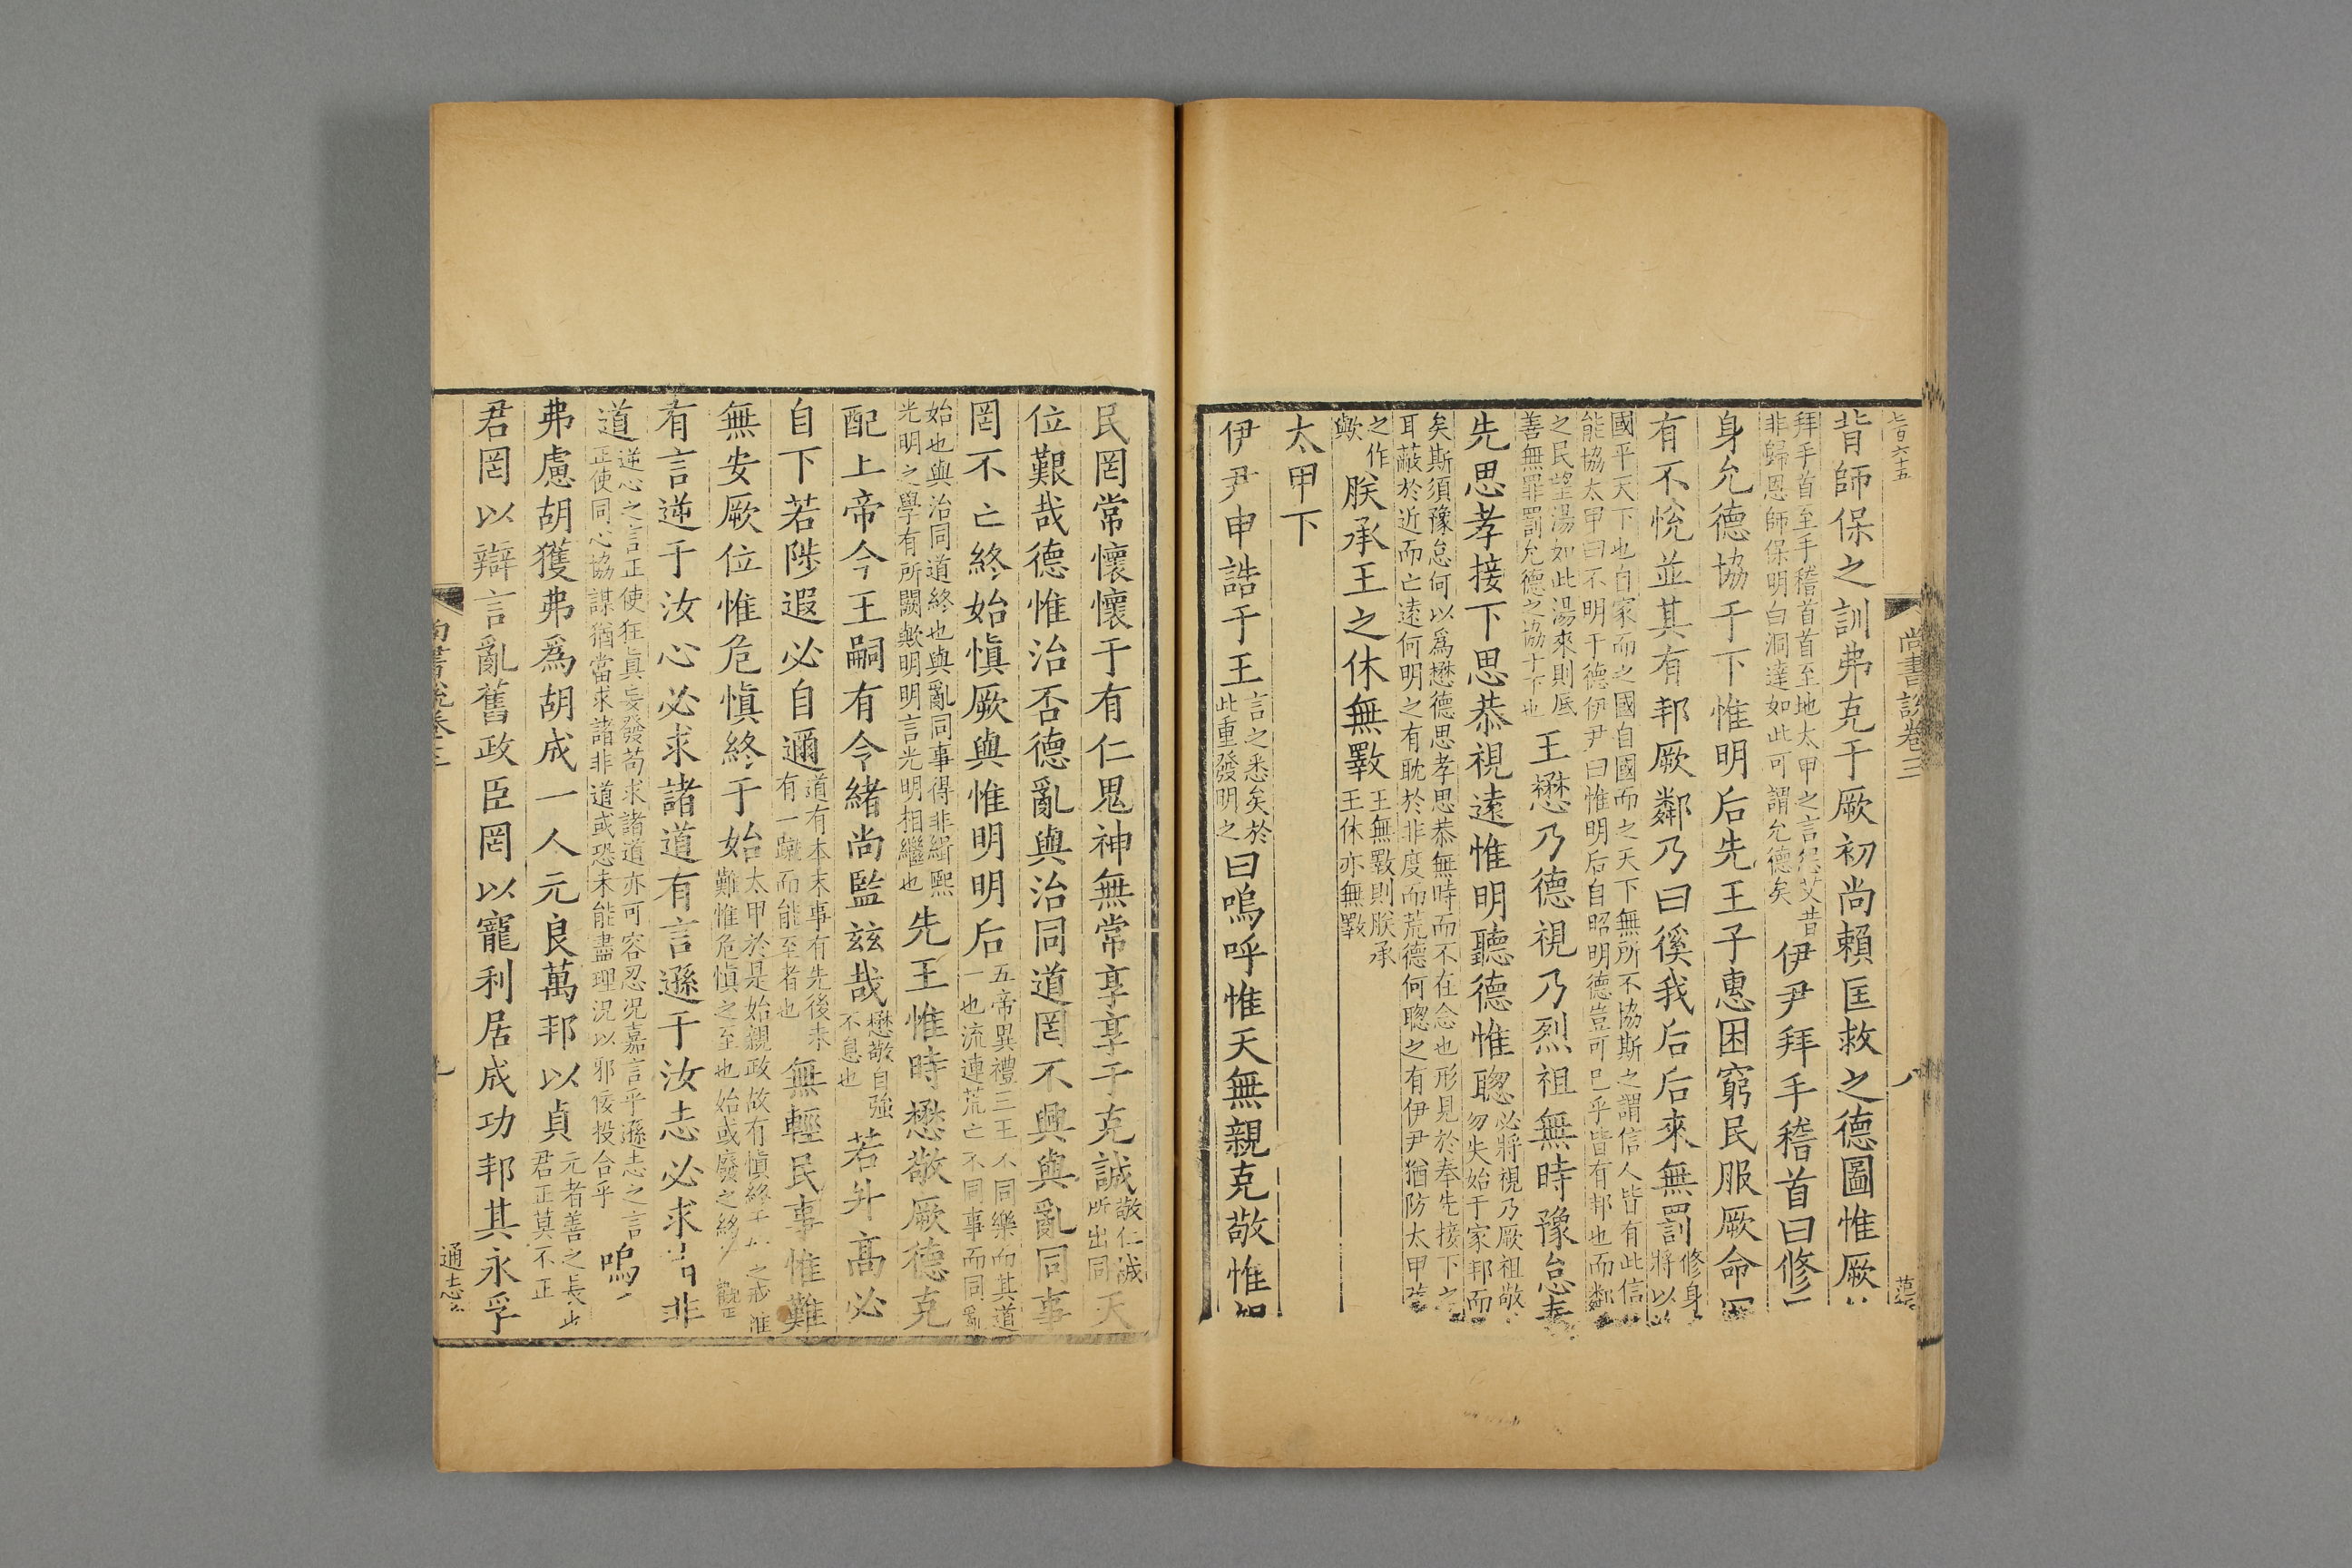 尚書說卷三
八
背師保之訓弗克于厥初尚賴匡救之德圖惟厥
拜手首至手稽首首至地太甲之言怨艾昔
非歸恩師保明白洞達如此可謂允德矣
伊尹拜手稽首曰修
身允德協于下惟明后先王子惠困窮民服厥命罔
有不悅並其有邦厥鄰乃曰徯我后后來無罰
修身
將以
國平天下也自家而之國自國而之天下無所不協斯之謂信人皆有此信
能協太甲曰不明于德伊尹曰惟明后自昭明德豈可已乎皆有邦也而鄰
之民望湯如此湯來則底
善無罪罰允德之協于下也
王懋乃德視乃烈祖無時豫怠奉
先思孝接下思恭視遠惟明聽德惟聰
必將視乃厥祖敬
勿失始于家邦而
矣斯須豫怠何以為懋德思孝思恭無時而不在念也形見於奉先接下之
耳蔽於近而亡遠何明之有耽於非度而荒德何聰之有伊尹猶防太甲
之作
歟
朕承王之休無斁
王無斁則朕承
王休亦無斁
太甲下
伊尹申誥于王
言之悉矣於
此重發明之
曰嗚呼惟天無親克敬惟親
民罔常懷懷于有仁鬼神無常享享于克誠
敬仁誠
所出同
天
位艱哉德惟治否德亂與治同道罔不興與亂同事
罔不亡終始慎厥與惟明明后
五帝異禮三王不同樂而其道
一也流連荒亡不同事而同亂
始也與治同道終也與亂同事得非緝熙
光明之學有所闕歟明明言光明相繼也
先王惟時懋敬厥德克
配上帝今王嗣有令緒尚監茲哉
懋敬自強
不息也
若升高必
自下若陟遐必自邇
道有本末事有先後未
有一蹴而能至者也
無輕民事惟難
無安厥位惟危慎終于始
太甲於是始親政故有慎終于 之戒惟
難惟危慎之至也始或廢之終
有言逆于汝心必求諸道有言遜于汝志必求諸非
道
逆心之言正使狂眞妄發苟求諸道亦可容忍況嘉言乎遜志之言
正使同心協謀猶當求諸非道或恐未能盡理況以邪佞投合乎
嗚
弗慮胡獲弗為胡成一人元良萬邦以貞
元者善之長
君正莫不正
君罔以辯言亂舊政臣罔以寵利居成功邦其永孚
尚書說卷三
通志